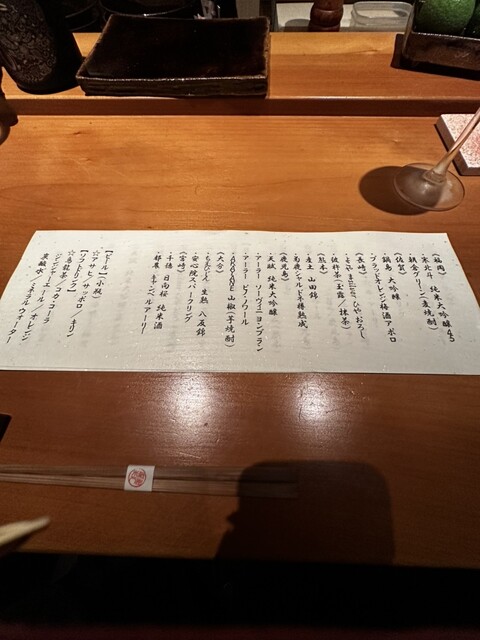 【福岡】
・寒北斗 純米大吟醸45
・朝倉グリーン(麦焼酎)
【佐賀】
・鍋島 大吟醸
・ブラッドオレンジ梅酒アポロ
【長崎】
・ひやおろし
・彼杵茶(玉露/抹茶)
【熊本】
・産土 山田錦
・菊鹿シャルドネ樽熟成
【鹿児島】
・天賦 純米大吟醸
・アーラー ソーヴィニヨンブラン
・アーラー ピノ・ノワール
・AKAYANE 山椒(芋焼酎)
【大分】
・ちえびじん 生熟 八反錦
・安心院スパークリング
【宮崎】
・千徳 日向桜 純米酒
・都農 キャンベルアーリー
【ビール】(小瓶)
☆アサヒ/サッポロ/キリン
【ソフトドリンク】
☆烏龍茶/コカ・コーラ
ジンジャーエール/オレンジ
炭酸水/ミネラルウォーター